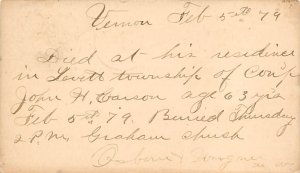 Vernon Feb 5th 79
Died at his residence
in Levitt township of Con'p
John H. Carson age 63 yrs
Feb 5th 79. Buried Thursday
2 P.M. Graham
Osborn